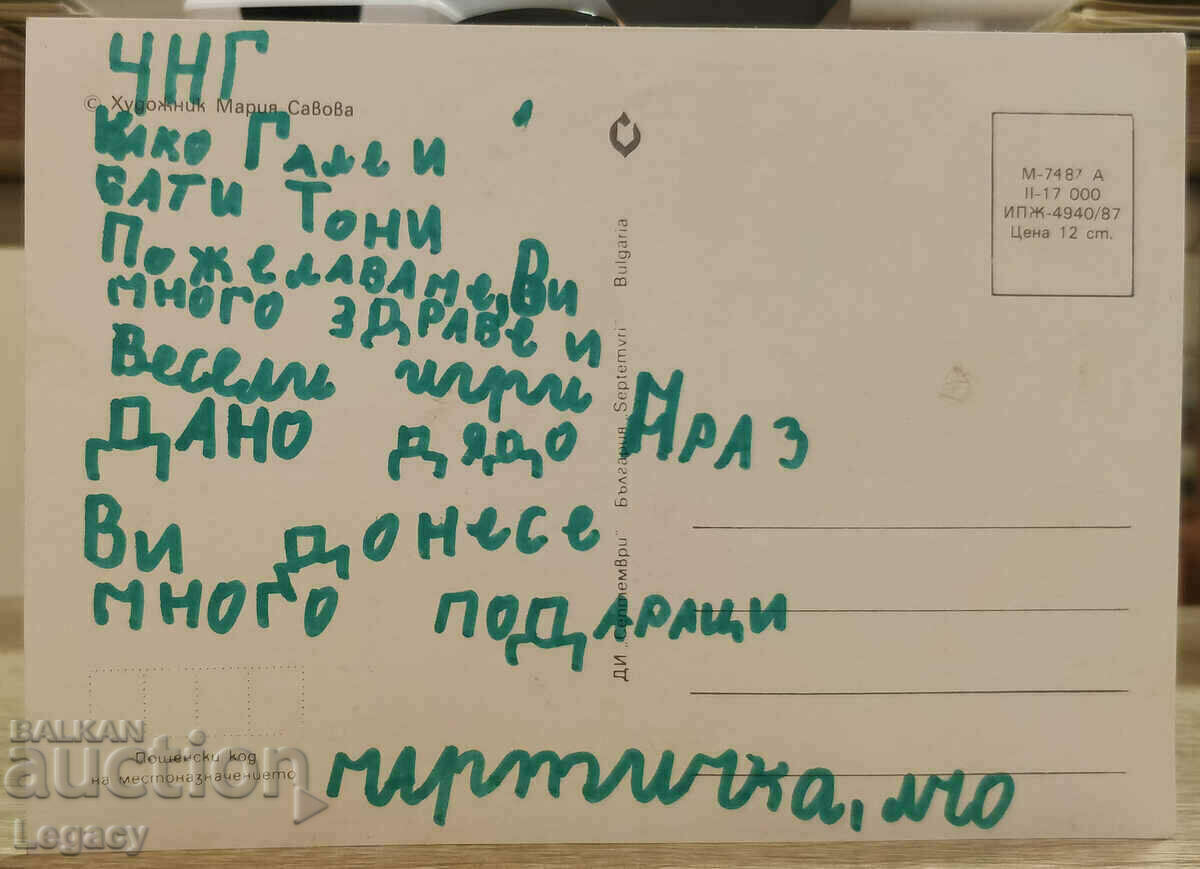 ЧНГ
© Художник Мария Савова
Како Гале и
бати Тони
Пожелаваме, Ви
много здраве и
Весели игри
ДАНО дядо Мраз
Ви донесе
много подараци
Пощенски код
на местоназначението
ДИ „Септември" България „Septemvri" Bulgaria
М-7487 А
II-17 000
ИПЖ-4940/87
Цена 12 ст.
BALKAN
auction
Legacy